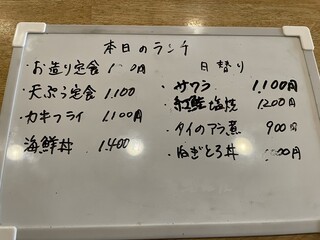 本日のランチ
・お造り定食 円
・天ぷら定食 1.100
・カキフライ 1.100円
海鮮丼 1.400
日替り
・サワラ 1,100円
・紅鮭塩焼 1200円
・タイのアラ煮 900円
・ねぎとろ丼 円